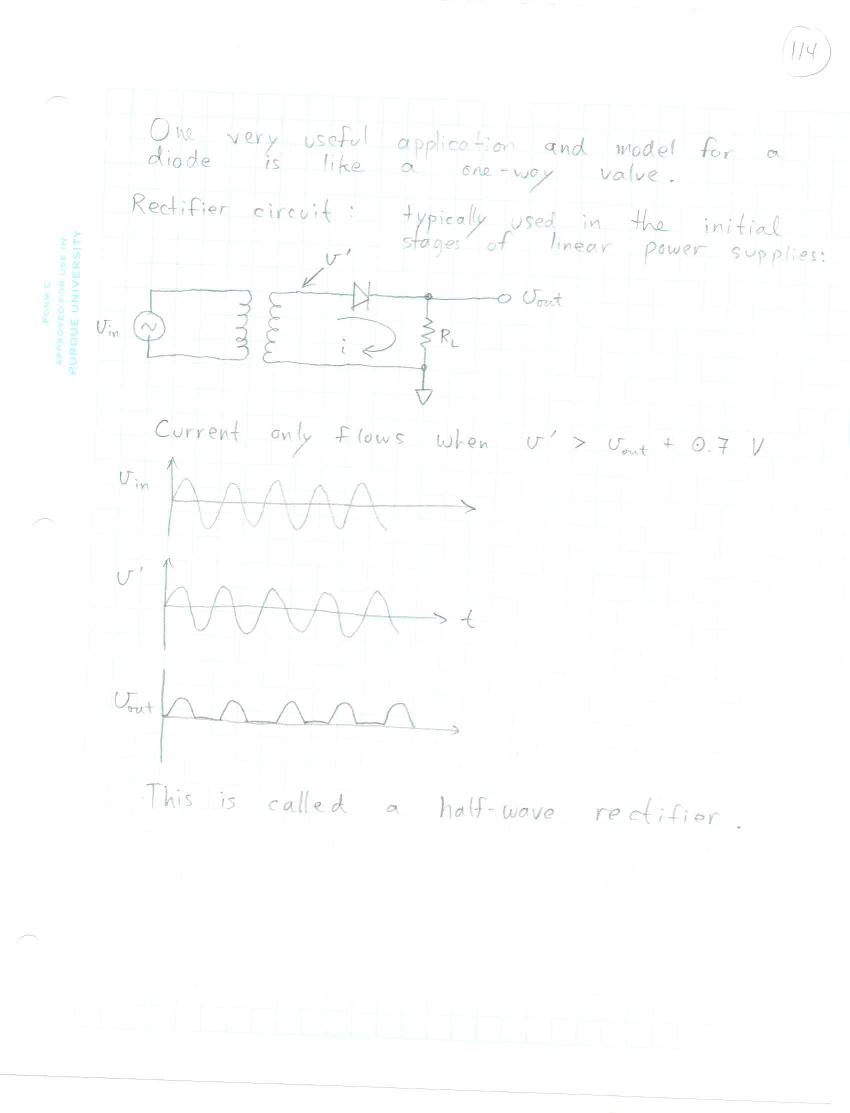 114
One very useful application and model for a
diode is like a one-way valve.
Rectifier circuit: typically used in the initial
stages of linear power supplies:
FORM C
APPROVED FOR USE IN
PURDUE UNIVERSITY
v'
v_out
v_in
i
R_L
Current only flows when v' > v_out + 0.7 V
v_in
v'
t
v_out
This is called a half-wave rectifier.